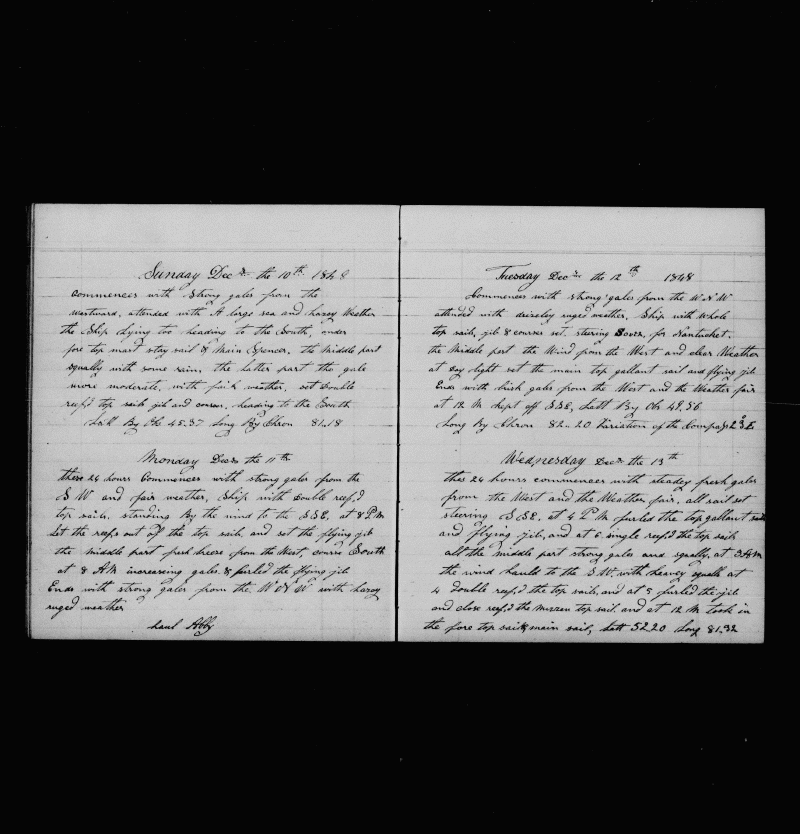 Sunday Decr the 10th 1848
Commences with Strong gales from the
westward, attended with A large sea and hazey Weather
the Ship Lying too heading to the South, under
fore top mast stay sail & Main Spencer, the Middle part
squally with some rain, the latter part the gale
more moderate, with fair weather, set Double
reef,d top sails jib and courses, heading to the South
Latt By Obs 45.37 Long By Chron 81.18
Monday Decr the 11th
these 24 hours Commences with strong gales from the
S W and fair weather, Ship with Double reef,d
top sails, standing By the wind to the S.S.E, at 8 P.M
Let the reefs out off the top sails, and set the flying jib
the Middle part fresh breeze from the West, course South
at 8 A.M increasing gales & furled the flying jib
Ends with strong gales from the W N W with hazey
ruged weather
Tuesday Decr the 12th 1848
Commences with strong gales from the W N W
attended with ruged weather, Ship with Whole
top sails, jib & courses set, stering for Nantucket.
the Middle part the Wind from the West and clear Weather
at Day light set the main top gallant sail and flying jib
Ends with brisk gales from the West and the Weather fair
at 12 M kept off S.S.E, Latt By Obs 49.56
Long By Chron 82-20 Variation of the Compass 23°E
Wednesday Decr the 13th
thes 24 hours commences with steadey fresh gales
from the West and the Weather fair, all sail set
steering S.S.E, at 4 P M furled the top gallant sails
and flying jib, and at 6 single reef,d the top sails
all the middle part strong gales and squally, at 3 A M
the wind hauld to the S.W. with heavey squalls at
4 double reef,d the top sails, and at 5 furled the jib
and close reef,d the mizzen top sail and at 12 M took in
the fore top sail & main sail, Latt 52.20 Long 81.32